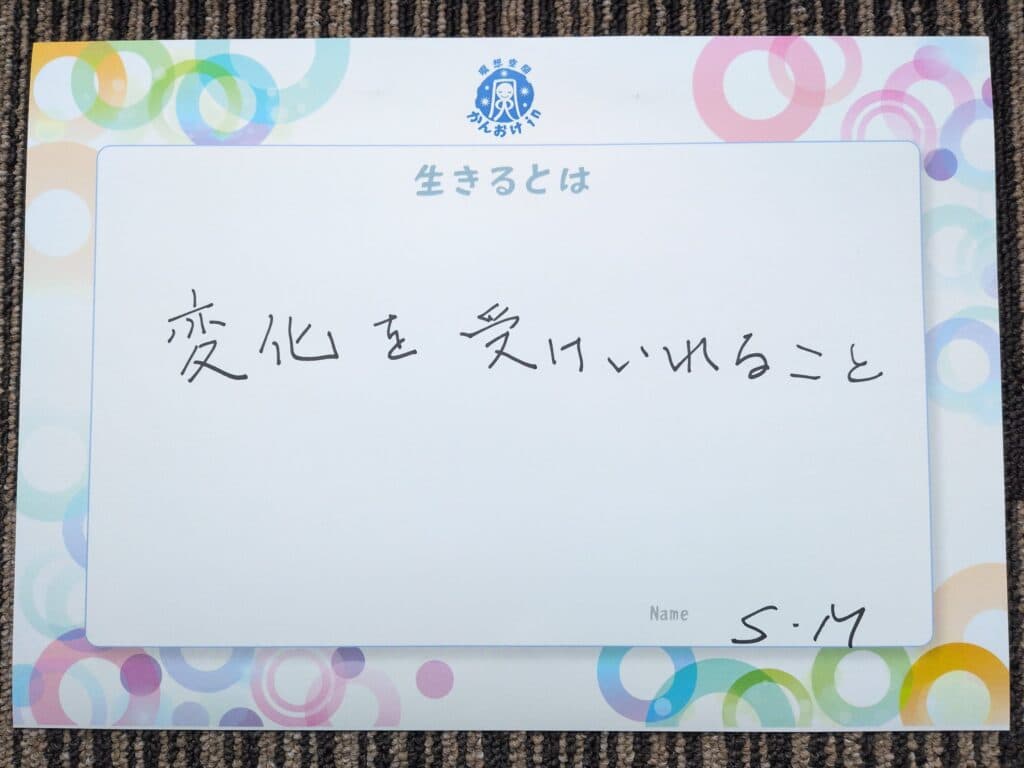 瞑想空間
かんおけin
生きるとは
変化を受けいれること
Name S.M